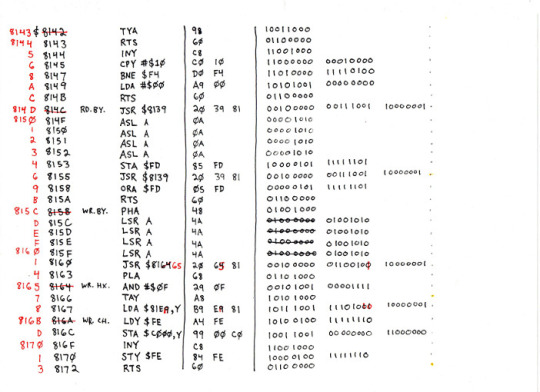 8143 $ 8142 TYA 98 10011000
8144 8143 RTS 6Ø 01100000
5 8144 INY C8 11001000
6 8145 CPY #$1Ø CØ 1Ø 11000000 00010000
8 8147 BNE $F4 DØ F4 11010000 11110100
A 8149 LDA #$ØØ A9 ØØ 10101001 00000000
C 814B RTS 6Ø 01100000
814D 814C RD.BY. JSR $8139 2Ø 39 81 00100000 00111001 10000001
815Ø 814F ASL A ØA 00001010
1 815Ø ASL A ØA 00001010
2 8151 ASL A ØA 00001010
3 8152 ASL A ØA 00001010
4 8153 STA $FD 85 FD 10000101 11111101
6 8155 JSR $8139 2Ø 39 81 00100000 00111001 10000001
9 8158 ORA $FD Ø5 FD 00000101 11111101
B 815A RTS 6Ø 01100000
815C 815B WR.BY. PHA 48 01001000
D 815C LSR A 4A 01001010
E 815D LSR A 4A 01001010
F 815E LSR A 4A 01001010
816Ø 815F LSR A 4A 01001010
1 816Ø JSR $816465 2Ø 65 81 00100000 01100100 10000001
4 8163 PLA 68 01101000
8165 8164 WR.HX. AND #$ØF 29 ØF 00101001 00001111
7 8166 TAY A8 10101000
8 8167 LDA $81E9,Y B9 E9 81 10111001 10000001
816B 816A WR.CH. LDY $FE A4 FE 10100100 11111110
D 816C STA $CØØØ,Y 99 ØØ CØ 10011001 00000000 11000000
817Ø 816F INY C8 11001000
1 817Ø STY $FE 84 FE 10000100 11111110
3 8172 RTS 6Ø 01100000